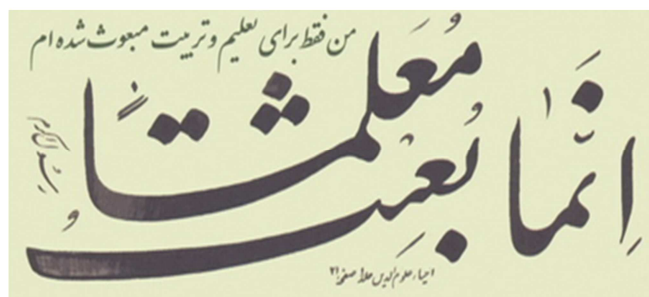 من فقط برای تعلیم و تربیت مبعوث شده ام
اِنَّمٰا بُعِثتُ مُعَلِّماً
رسول اکرم
احیاء علوم الدین جلد ۱ صفحه ۲۱